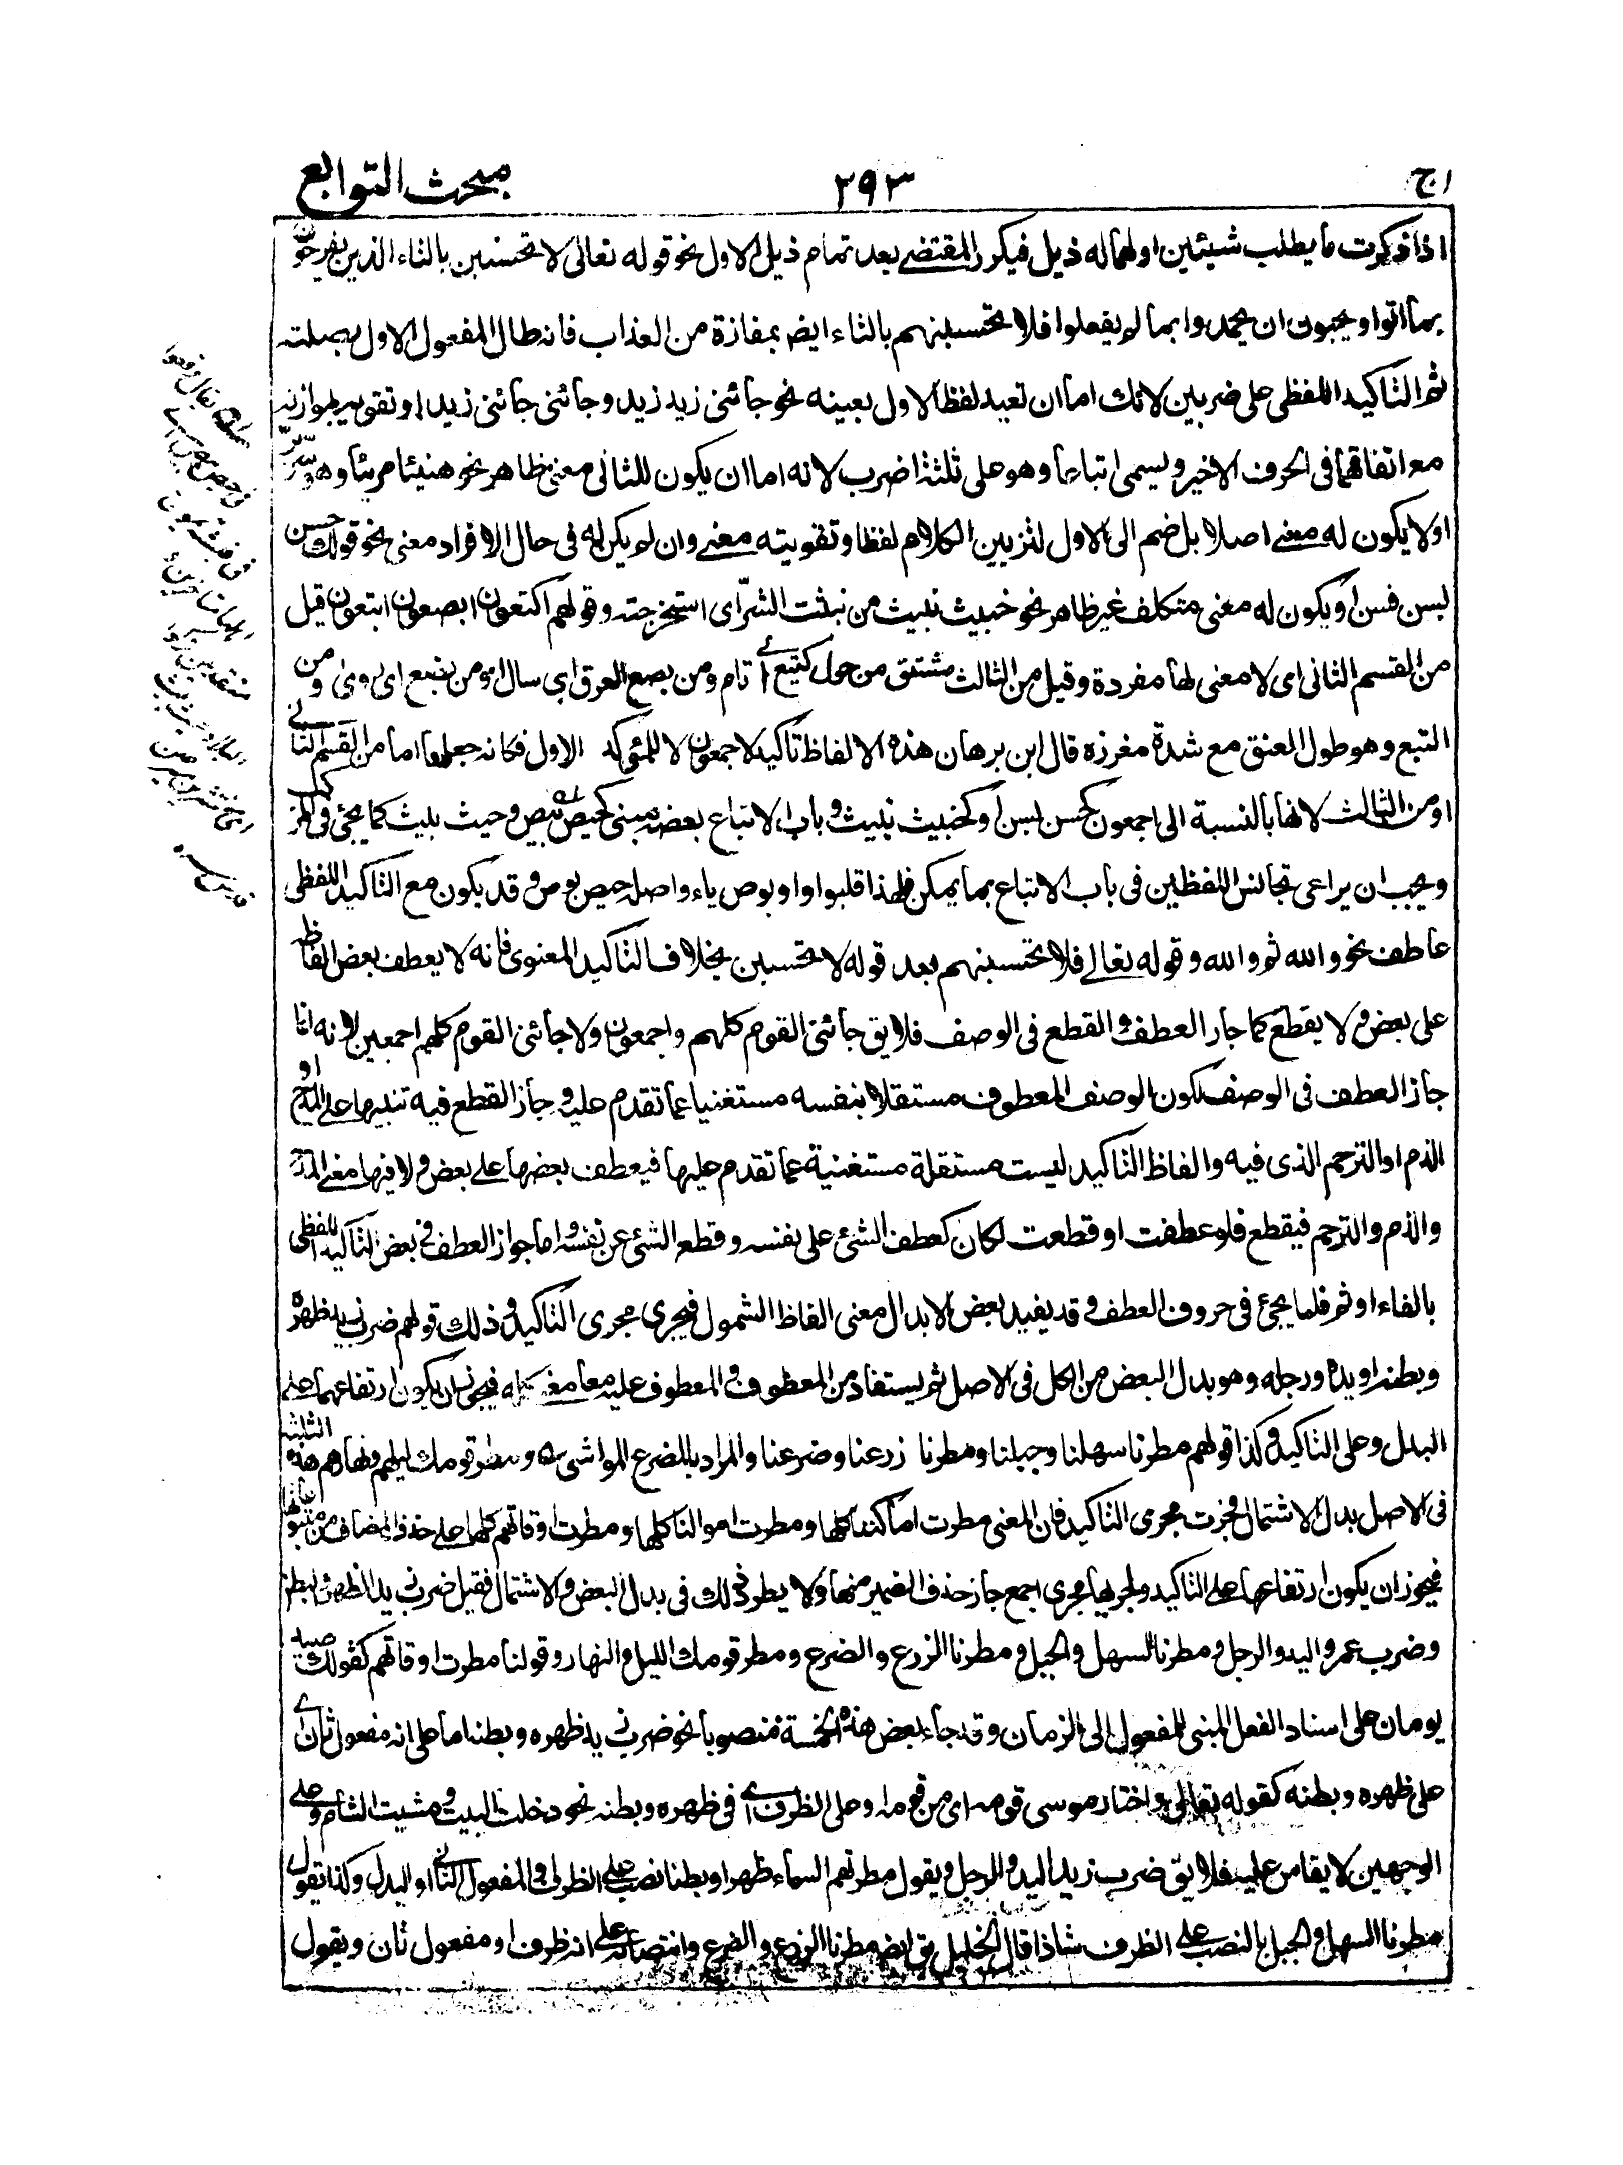 ج ١
٢٩٣
مبحث التوابع
اذا ذكرت ما يطلب شيئين اولهما له ذيل فيكرر المقتضى بعد تمام ذيل الاول نحو قوله تعالى لا تحسبن بالتاء الذين يفرحون
بما اتوا ويحبون ان يحمدوا بما لم يفعلوا فلا تحسبنهم بالتاء ايض بمفازة من العذاب فانه طال المفعول الاول بصلته
ثم التاكيد اللفظى على ضربين لانك اما ان تعيد لفظ الاول بعينه نحو جائنى زيد زيد وجائنى جائنى زيد او تقويه بموازنه
مع اتفاقهما فى الحرف الاخير ويسمى اتباعا وهو على ثلثة اضرب لانه اما ان يكون للثانى معنى ظاهر نحو هنيئا مريئا وهو سر بر
او لا يكون له معنى اصلا بل ضم الى الاول لتزيين الكلام لفظا وتقويته معنى وان لم يكن له فى حال الافراد معنى نحو قولك حسن
بسن فسن او يكون له معنى متكلف غير ظاهر نحو خبيث نبيث من نبثت الشرّ اى استخرجته وقولهم اكتعون ابصعون ابتعون قيل
من القسم الثانى اى لا معنى لها مفردة وقيل من الثالث مشتق من حول كتيع اى تام ومن بصع العرق اى سال او من بضع اى روى ومن
التبع وهو طول العنق مع شدة مغرزه قال ابن برهان هذه الالفاظ تاكيد لاجمعون لا للمؤكد الاول فكانه جعلها اما من القسم الثانى
او من الثالث لانها بالنسبة الى اجمعون كحسن بسن او كخبيث نبيث وباب الاتباع بعضه مبنى كحيص بيص وحيث بليث كما يجئ فى المركب
ويجب ان يراعى تجانس اللفظين فى باب الاتباع بما يمكن فلهذا قلبوا واو بوص ياء واصله حيص بوص وقد يكون مع التاكيد اللفظى
عاطف نحو والله ثم والله وقوله تعالى فلا تحسبنهم بعد قوله لا تحسبن بخلاف التاكيد المعنوى فانه لا يعطف بعض الفاظه
على بعض ولا يقطع كما جاز العطف والقطع فى الوصف فلا يق جائنى القوم كلهم واجمعون ولا جائنى القوم كلهم اجمعين لانه انما
جاز العطف فى الوصف لكون الوصف المعطوف مستقلا بنفسه مستغنيا عما تقدم عليه وجاز القطع فيه تنبيها على المدح او
الذم او الترحم الذى فيه والفاظ التاكيد ليست مستقلة مستغنية عما تقدم عليها فيعطف بعضها على بعض ولا فيها معنى المدح
والذم والترحم فيقطع فلو عطفت او قطعت لكان كعطف الشئ على نفسه وقطع الشئ عن نفسه واما جواز العطف فى بعض التاكيد اللفظى
بالفاء او ثم فلما يجئ فى حروف العطف وقد يفيد بعض الابدال معنى الفاظ الشمول فيجرى مجرى التاكيد وذلك قولهم ضرب زيد ظهره
وبطنه او يده ورجله وهو بدل البعض من الكل فى الاصل ثم يستفاد من المعطوف والمعطوف عليه معا معنى كله فيجوز ان يكون ارتفاعهما على
البدل وعلى التاكيد وكذا قولهم مطرنا سهلنا وجبلنا ومطرنا زرعنا وضرعنا والمراد بالضرع المواشى ومطر قومك ليلهم ونهارهم هذه الثلثة
فى الاصل بدل الاشتمال فجرت مجرى التاكيد فان المعنى مطرت اماكننا كلها ومطرت اموالنا كلها ومطرت اوقاتهم كلها على حذف المضاف من متبوعاتها
فيجوز ان يكون ارتفاعها على التاكيد ولجريها مجرى اجمع جاز حذف الضمير منها ولا يطرد ذلك فى بدل البعض والاشتمال فقيل ضرب زيد الظهر والبطن
وضرب عمرو اليد والرجل ومطرنا السهل والجبل ومطرنا الزرع والضرع ومطر قومك الليل والنهار وقولنا مطرت اوقاتهم كقولك صيد
يومان على اسناد الفعل المبنى للمفعول الى الزمان وقد جاء بعض هذه الخمسة منصوبا نحو ضرب زيد ظهره وبطنه اما على انه مفعول ثان اى
على ظهره وبطنه كقوله تعالى واختار موسى قومه اى من قومه وعلى الظرف اى فى ظهره وبطنه نحو دخلت البيت ومشيت الشام وعلى
الوجهين لا يقاس عليه فلا يق ضرب زيد اليد والرجل ويقول مطرتهم السماء ظهرا وبطنا نصب على الظرف والمفعول الثانى او البدل وكذا يقول
مطرنا السهل والجبل بالنصب على الظرف شاذا قال الخليل يق ايضه مطرنا الزرع والضرع وانتصابه على انه ظرف او مفعول ثان ويقول